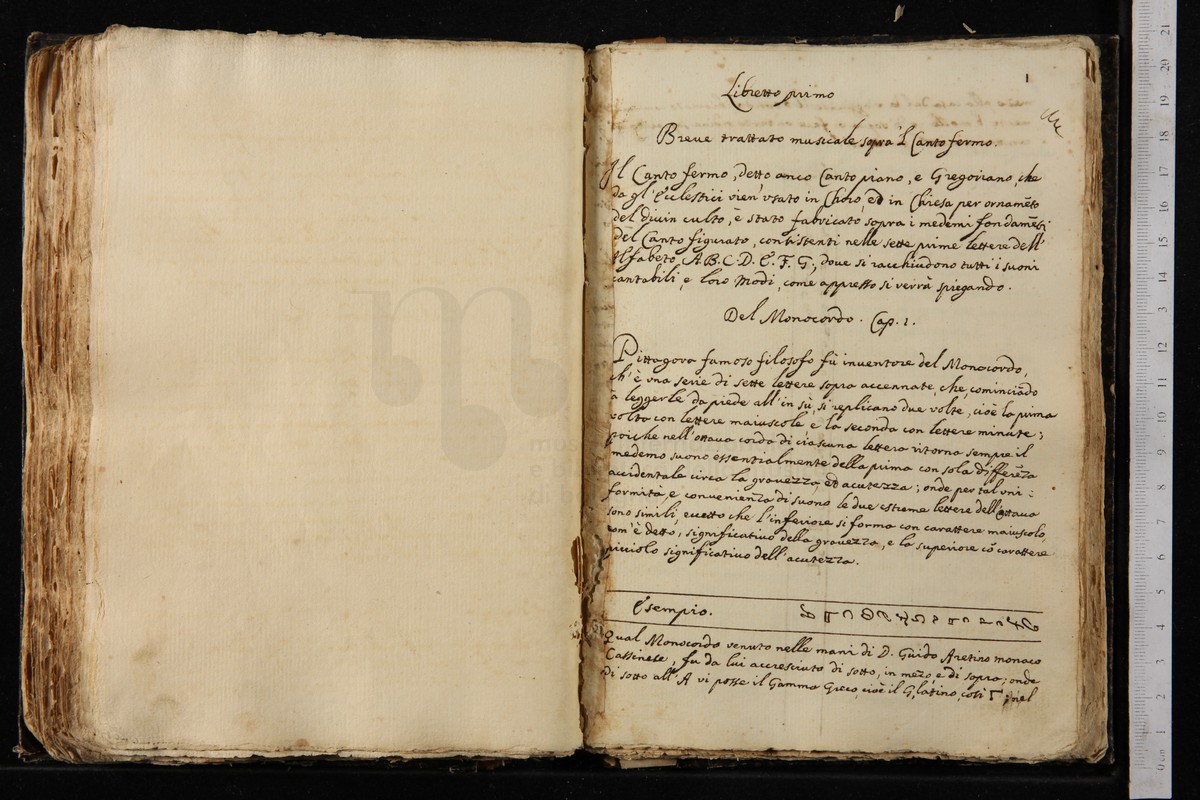 1
Libretto primo
Breue trattato musicale sopra 'l Canto fermo.
Il Canto fermo, detto anco Canto piano, e Gregoriano, che
da gl'Ecclestici vien' vsato in Choro, ed in Chiesa per ornamẽto
del diuin culto, è stato fabricato sopra i medemi fondamẽti
del Canto figurato, consistenti nelle sette prime lettere dell'
Alfabeto, A. B. C. D. E. F. G, doue si racchiudono tutti i suoni
cantabili, e loro Modi, come appresso si verrà spiegando.
Del Monocordo. Cap. 1.
Pittagora famoso filosofo fù inuentore del Monocordo,
ch'è vna serie di sette lettere sopra accennate, che cominciãdo
a leggerle da piede all'in sù, si replicano due volte, cioè la prima
volta con lettere maiuscole e la seconda con lettere minute;
poiche nell'ottaua corda di ciascuna lettera ritorna sempre il
medemo suono essentialmente della prima con sola differẽza
accidentale circa la grauezza, ed acutezza; onde per tal vni:
formità, e conuenienza di suono le due estreme lettere dell'ottaua
sono simili, eccetto che l'inferiore si forma con carattere maiuscolo,
com'è detto, significatiuo della grauezza, e la superiore cõ carattere
picciolo significatiuo dell'acutezza.
Esempio.
Qual Monocordo venuto nelle mani di D. Guido Aretino monaco
Cassinese, fu da lui accresciuto di sotto, in mezo, e di sopra; onde
di sotto all'A vi posse il Gamma Greco, cioè il G, latino, così Γ; nel